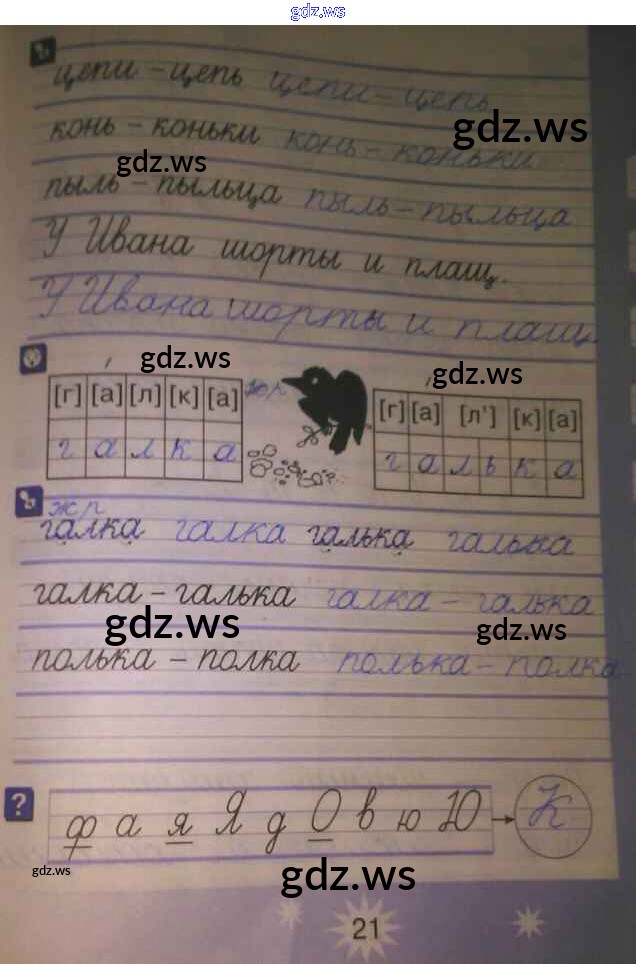 gdz.ws
цепи - цепь цепи - цепь
gdz.ws
конь - коньки конь - коньки
gdz.ws
пыль - пыльца пыль - пыльца
У Ивана шорты и плащ.
У Ивана шорты и плащ.
gdz.ws
gdz.ws
[г] [а] [л] [к] [а] ж р [г] [а] [л'] [к] [а]
г а л к а г а л ь к а
ж р
галка галка галька галька
галка - галька галка - галька
gdz.ws
gdz.ws
полька - полка полька - полка
? ф а я Я д О в ю Ю К
gdz.ws
gdz.ws
21